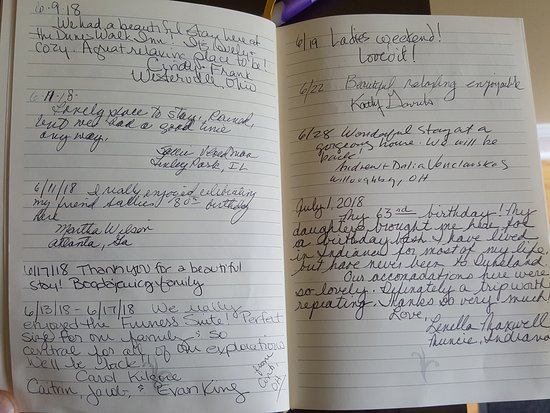 6-9-18
We had a beautiful stay here at
the Dunes Walk Inn! It's lovely &
cozy. A great relaxing place to be!
Cyndi Frank
Wisterville, Ohio
6-11-18
Lovely place to stay. Rained,
but we had a good time
any way.
Tinley Park, IL
6/11/18 I really enjoyed celebrating
my friend Sallie's 80th birthday
here
Martha Wilson
Atlanta, Ga
6/17/18 Thank you for a beautiful
stay! family
6/13/18 - 6/17/18 We really
enjoyed the Suite! Perfect
size for our family & so
central for all of our explorations
We'll be back!!
Carol Kilgore
Caitrin, Jacob, & Evan King
from
6/19 Ladies weekend!
Loved it!
6/22 Beautiful relaxing enjoyable
Kathy
6/28 Wonderful stay at a
gorgeous house. We will be
back
Andrew & Dalia Venclauskas
Willoughby, OH
July 1, 2018
My 63rd birthday! My
daughters brought me here for
a birthday bash I have lived
in Indiana for most of my life,
but have never been to Duneland
Our accomdations here were
so lovely. Definately a trip worth
repeating. Thanks so very much!
Love,
Lenella Maxwell
Muncie, Indiana